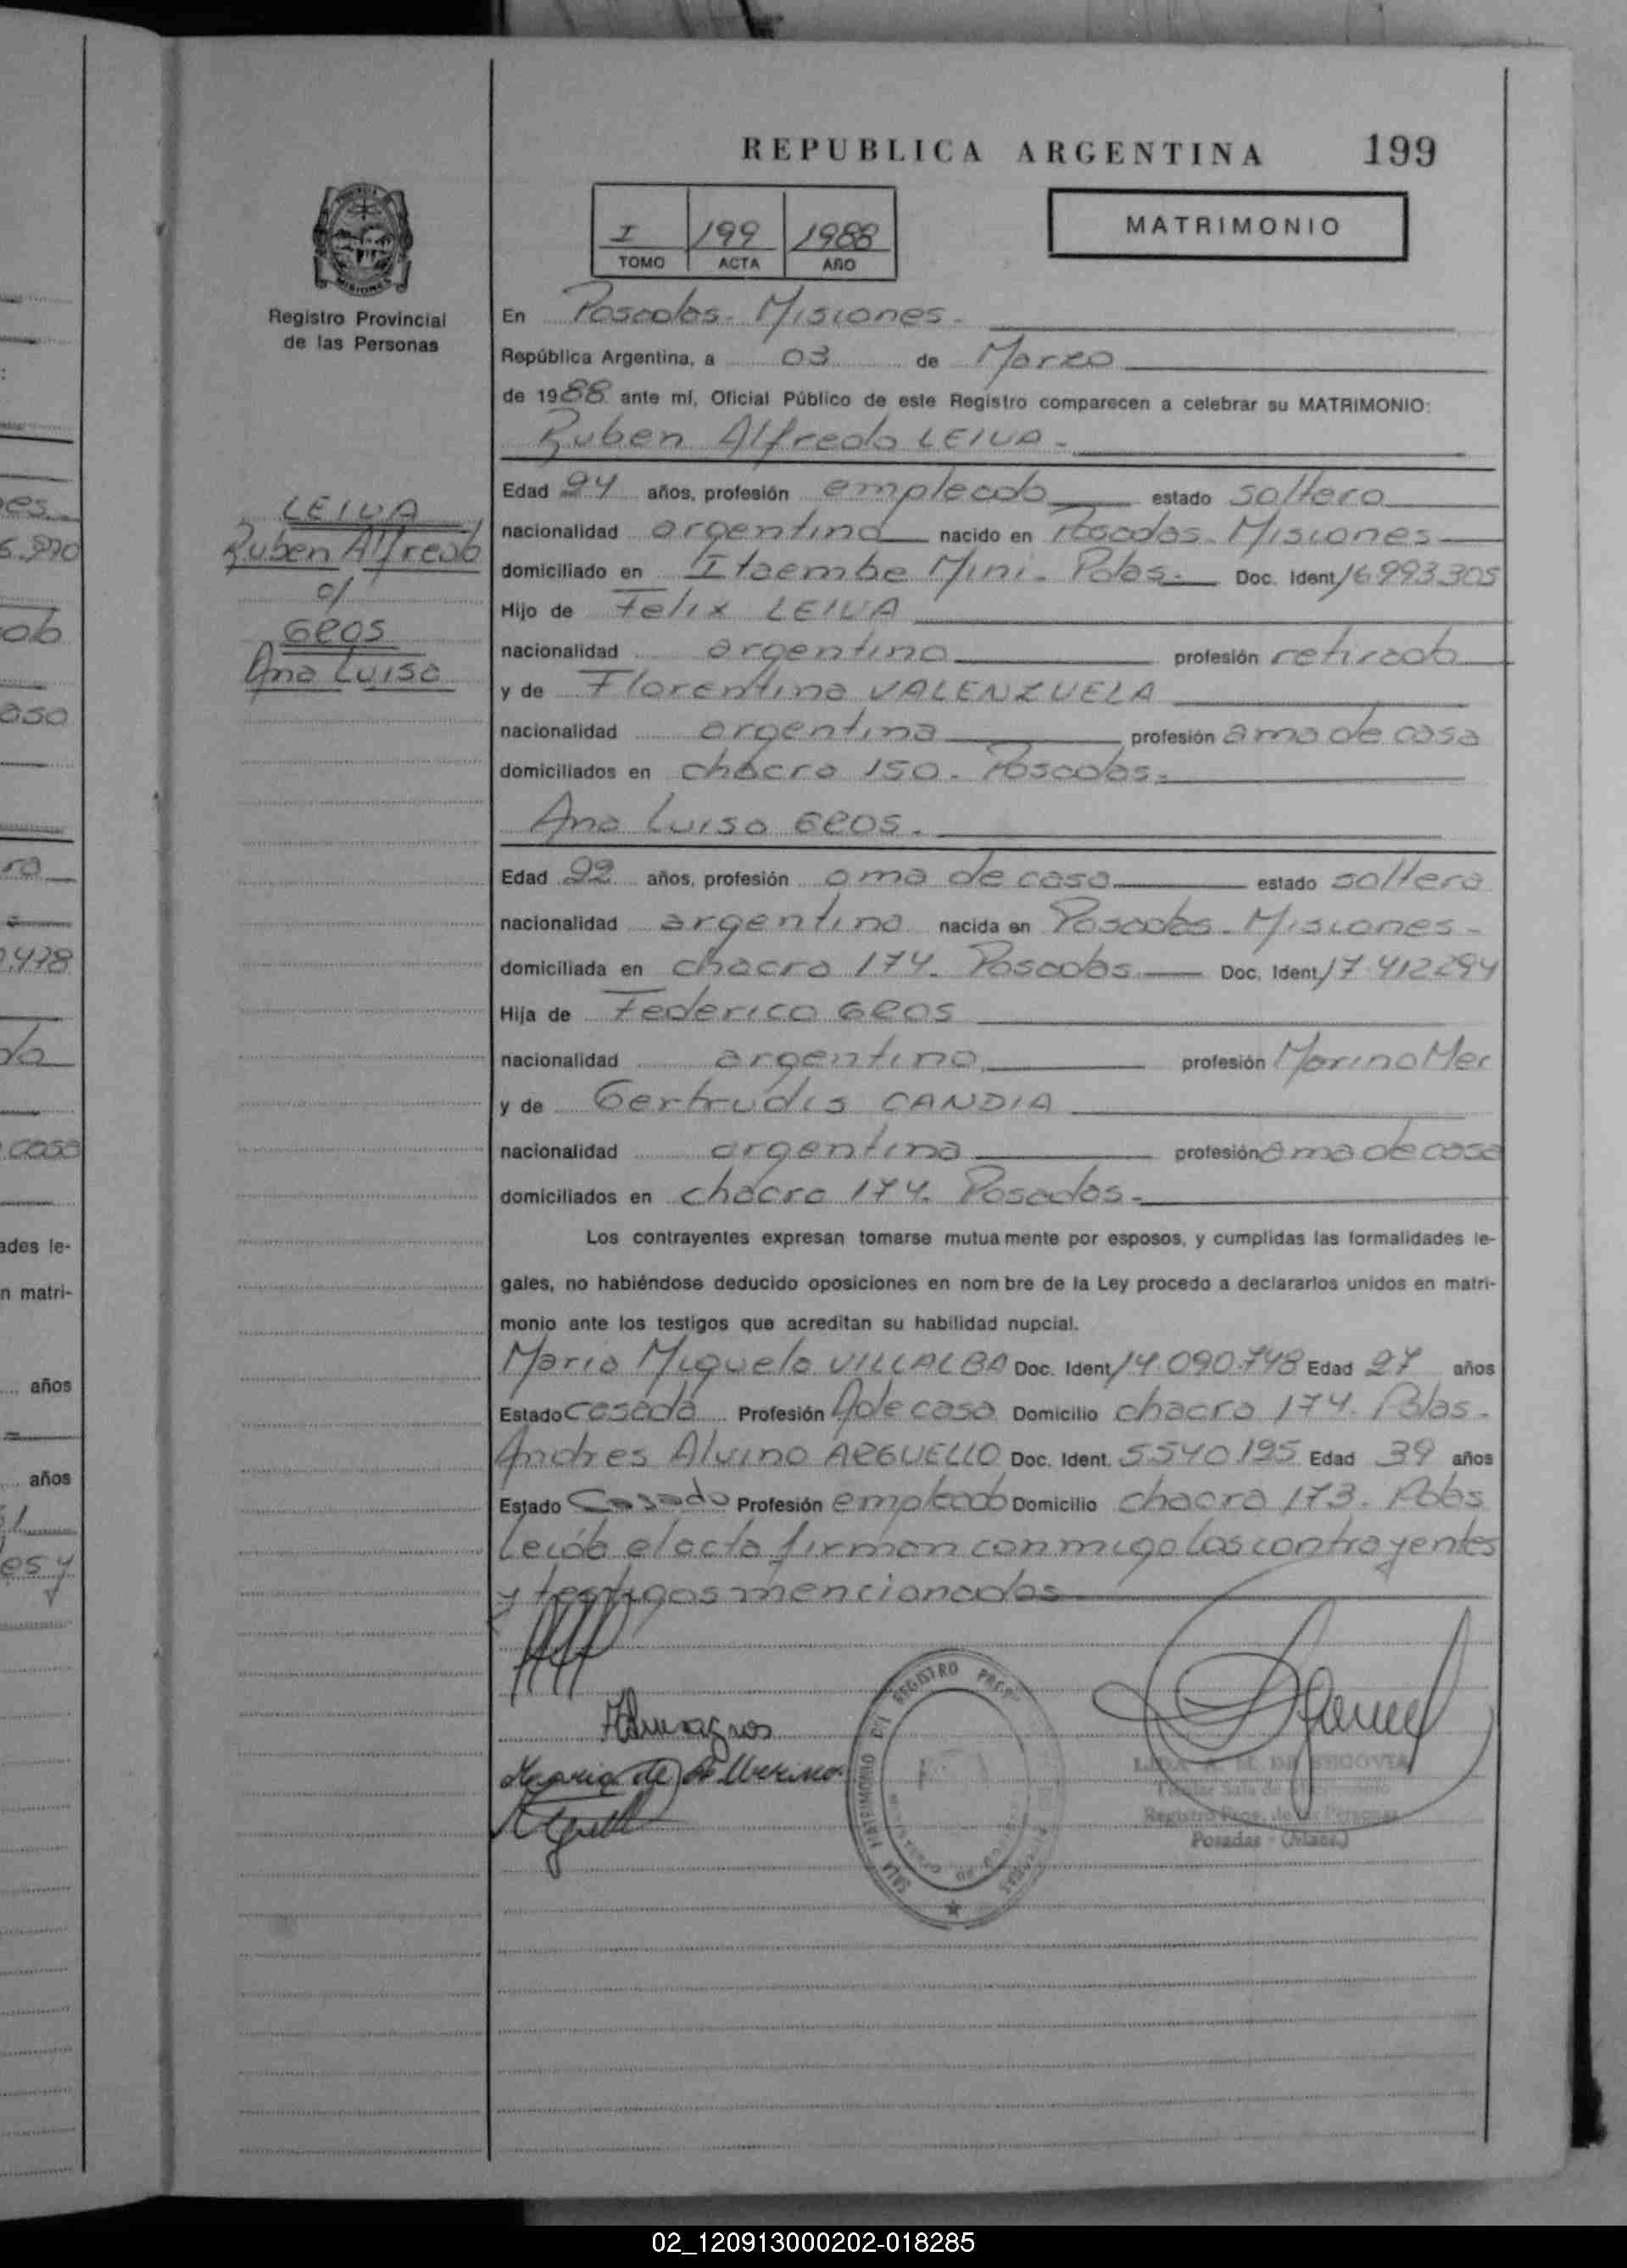 REPUBLICA ARGENTINA 199
I 199 1988
TOMO ACTA AÑO
MATRIMONIO
MISIONES
Registro Provincial
de las Personas
LEIVA
Ruben Alfredo
c/
GROS
Ana Luisa
En Posadas - Misiones -
República Argentina, a 03 de Marzo
de 1988 ante mí, Oficial Público de este Registro comparecen a celebrar su MATRIMONIO:
Ruben Alfredo LEIVA -
Edad 24 años, profesión empleado estado soltero
nacionalidad argentina nacido en Posadas - Misiones
domiciliado en Itaembe Mini - Pdas - Doc. Ident 16993.305
Hijo de Felix LEIVA
nacionalidad argentino profesión retirado
y de Florentina VALENZUELA
nacionalidad argentina profesión ama de casa
domiciliados en chacra 150 - Posadas -
Ana Luisa GROS -
Edad 22 años, profesión ama de casa estado soltera
nacionalidad argentina nacida en Posadas - Misiones -
domiciliada en chacra 174 - Posadas Doc. Ident 17.412294
Hija de Federico GROS
nacionalidad argentino profesión Marino Mer
y de Gertrudis CANDIA
nacionalidad argentina profesión ama de casa
domiciliados en chacra 174 - Posadas -
Los contrayentes expresan tomarse mutua mente por esposos, y cumplidas las formalidades le-
gales, no habiéndose deducido oposiciones en nom bre de la Ley procedo a declararlos unidos en matri-
monio ante los testigos que acreditan su habilidad nupcial.
Maria Miguela VILLALBA Doc. Ident 14.090.748 Edad 27 años
Estado casada Profesión A de casa Domicilio chacra 174 - Pdas -
Andres Alvino ARGUELLO Doc. Ident. 5.540.195 Edad 39 años
Estado Casado Profesión empleado Domicilio chacra 173 - Pdas
Leída el acta firman conmigo los contrayentes
y testigos mencionados
SALA MATRIMONIO DEL REGISTRO
DE SEGOVIA
Registro Prov. de las Personas
Posadas - (Mnes.)
es
ob
aso
ra
casa
ades le-
n matri-
años
años
es y
02_120913000202-018285